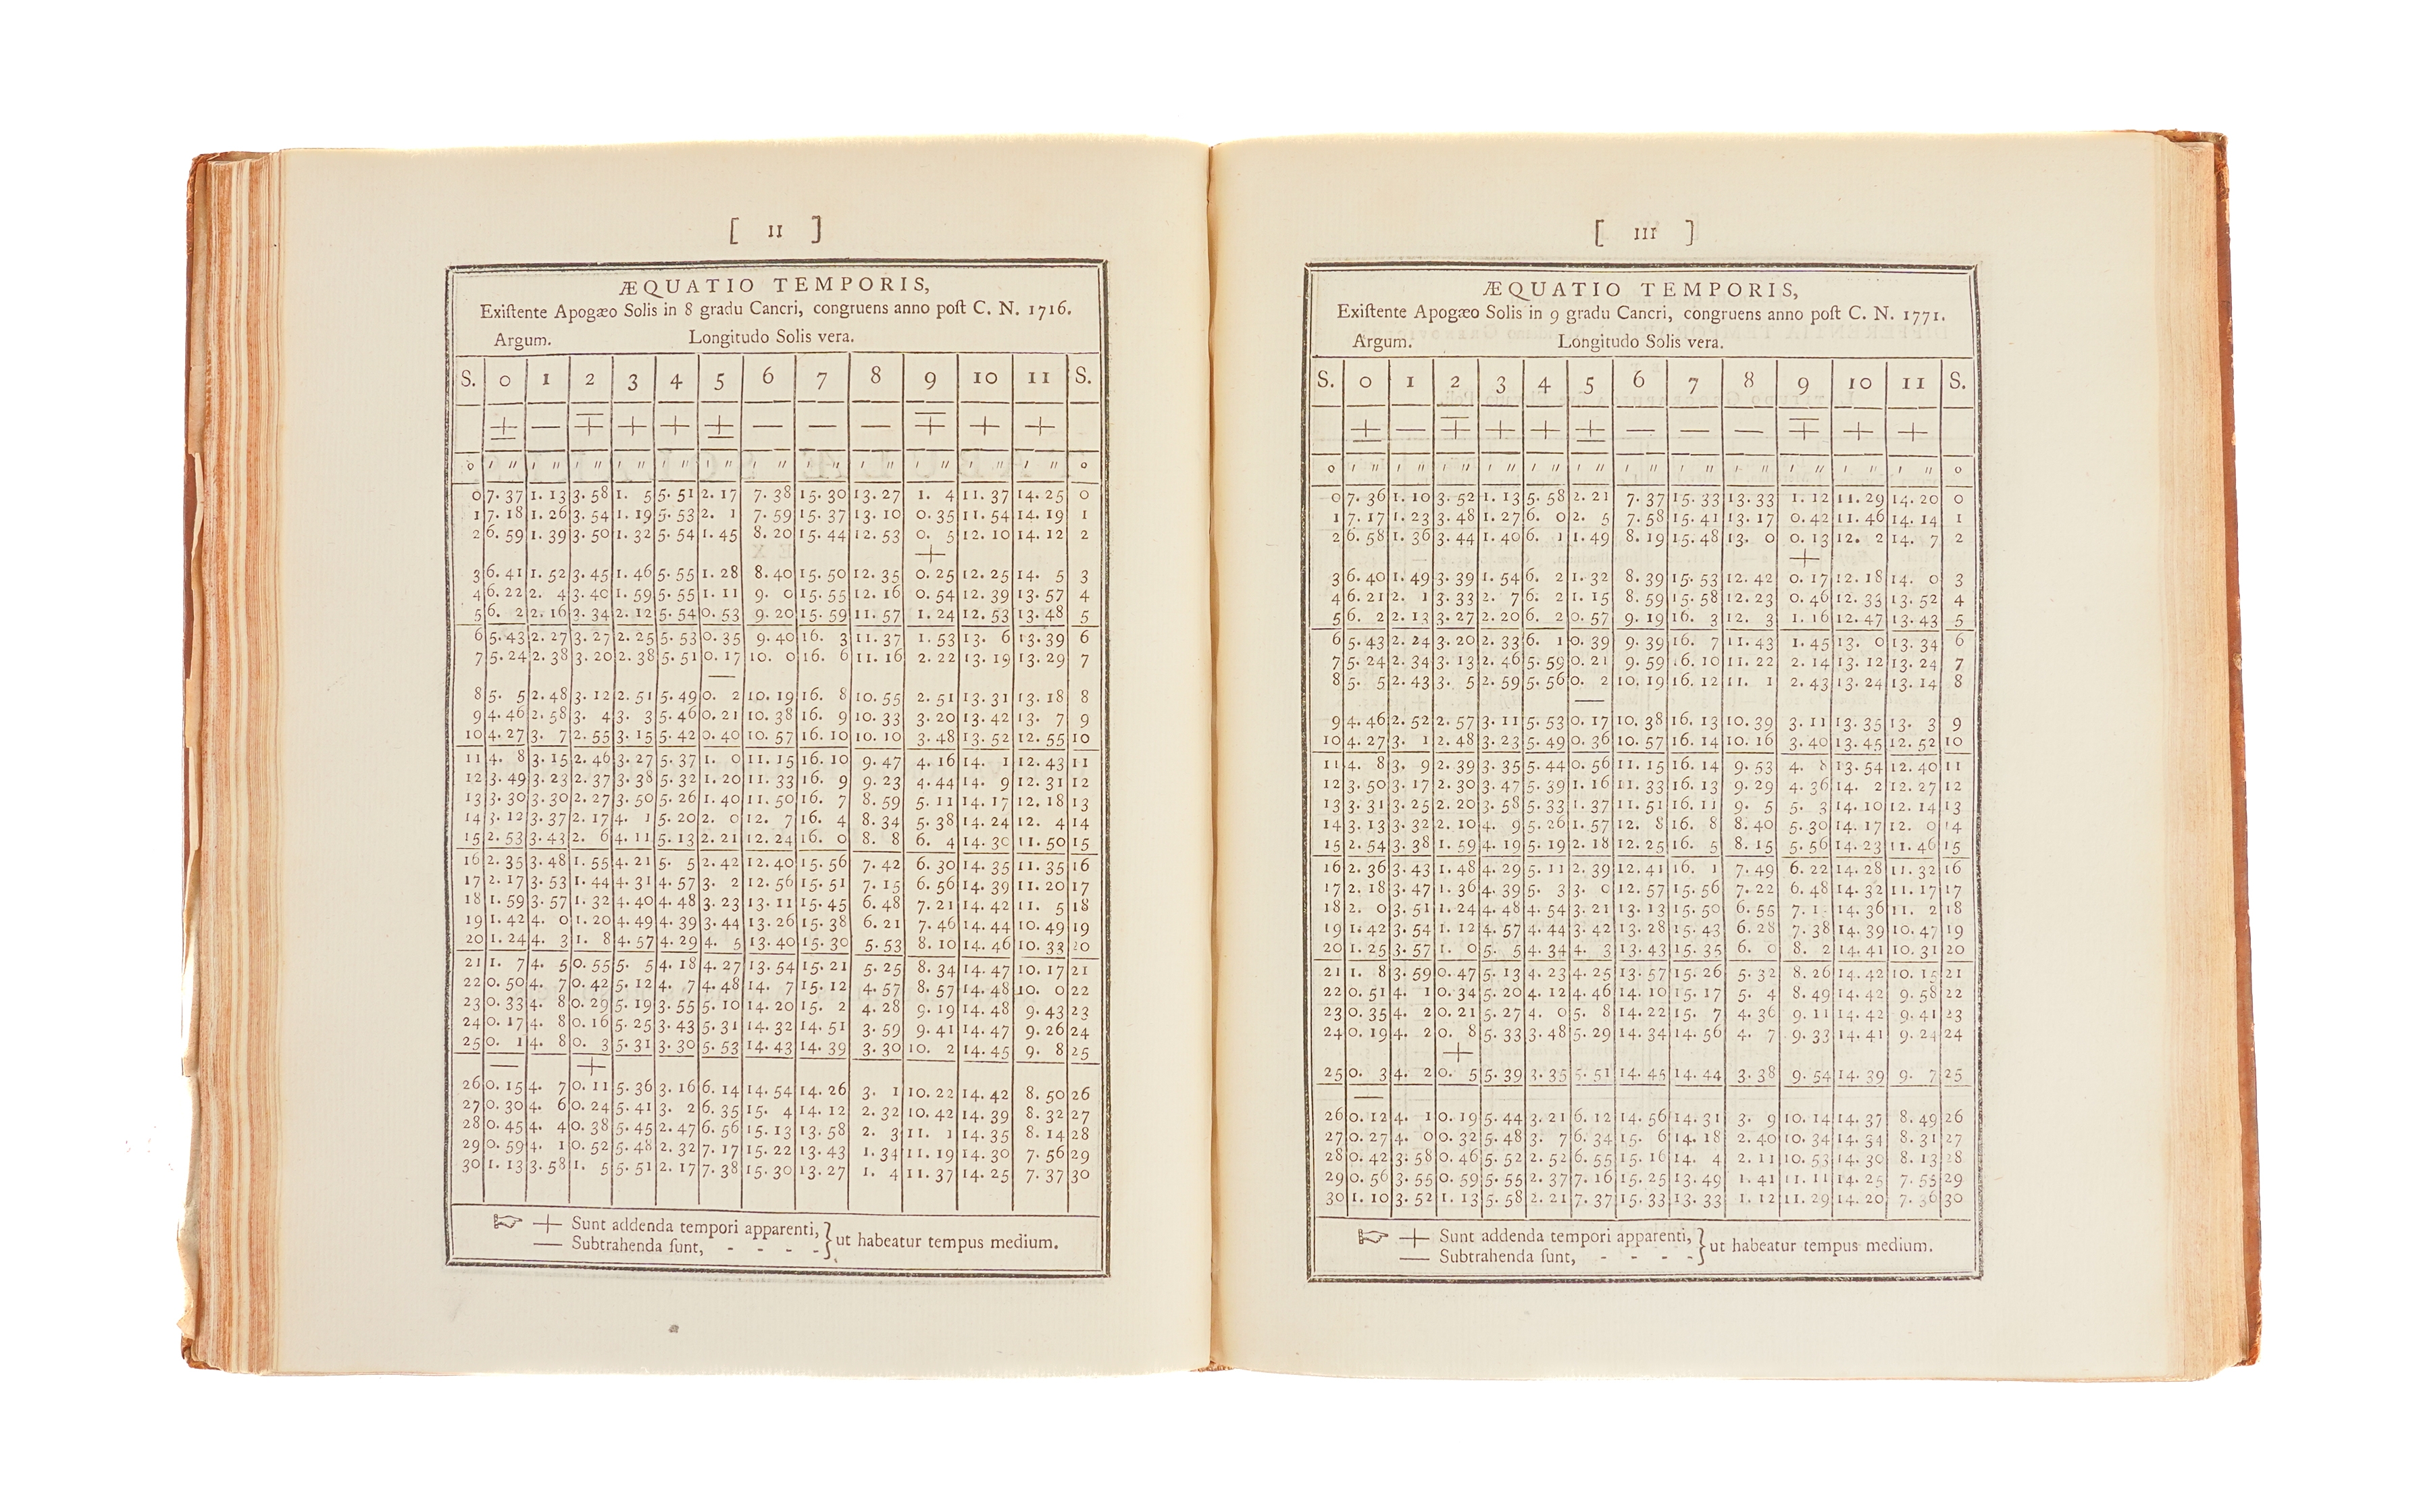 [ II ]
ÆQUATIO TEMPORIS,
Exiſtente Apogæo Solis in 8 gradu Cancri, congruens anno poſt C. N. 1716.
Argum. Longitudo Solis vera.
S. 0 1 2 3 4 5 6 7 8 9 10 11 S.
± — ∓ + + ± — — — ∓ + +
0 ′ ″ ′ ″ ′ ″ ′ ″ ′ ″ ′ ″ ′ ″ ′ ″ ′ ″ ′ ″ ′ ″ ′ ″ 0
0 7. 37 1. 13 3. 58 1. 5 5. 51 2. 17 7. 38 15. 30 13. 27 1. 4 11. 37 14. 25 0
1 7. 18 1. 26 3. 54 1. 19 5. 53 2. 1 7. 59 15. 37 13. 10 0. 35 11. 54 14. 19 1
2 6. 59 1. 39 3. 50 1. 32 5. 54 1. 45 8. 20 15. 44 12. 53 0. 5 12. 10 14. 12 2
+
3 6. 41 1. 52 3. 45 1. 46 5. 55 1. 28 8. 40 15. 50 12. 35 0. 25 12. 25 14. 5 3
4 6. 22 2. 4 3. 40 1. 59 5. 55 1. 11 9. 0 15. 55 12. 16 0. 54 12. 39 13. 57 4
5 6. 2 2. 16 3. 34 2. 12 5. 54 0. 53 9. 20 15. 59 11. 57 1. 24 12. 53 13. 48 5
6 5. 43 2. 27 3. 27 2. 25 5. 53 0. 35 9. 40 16. 3 11. 37 1. 53 13. 6 13. 39 6
7 5. 24 2. 38 3. 20 2. 38 5. 51 0. 17 10. 0 16. 6 11. 16 2. 22 13. 19 13. 29 7
—
8 5. 5 2. 48 3. 12 2. 51 5. 49 0. 2 10. 19 16. 8 10. 55 2. 51 13. 31 13. 18 8
9 4. 46 2. 58 3. 4 3. 3 5. 46 0. 21 10. 38 16. 9 10. 33 3. 20 13. 42 13. 7 9
10 4. 27 3. 7 2. 55 3. 15 5. 42 0. 40 10. 57 16. 10 10. 10 3. 48 13. 52 12. 55 10
11 4. 8 3. 15 2. 46 3. 27 5. 37 1. 0 11. 15 16. 10 9. 47 4. 16 14. 1 12. 43 11
12 3. 49 3. 23 2. 37 3. 38 5. 32 1. 20 11. 33 16. 9 9. 23 4. 44 14. 9 12. 31 12
13 3. 30 3. 30 2. 27 3. 50 5. 26 1. 40 11. 50 16. 7 8. 59 5. 11 14. 17 12. 18 13
14 3. 12 3. 37 2. 17 4. 1 5. 20 2. 0 12. 7 16. 4 8. 34 5. 38 14. 24 12. 4 14
15 2. 53 3. 43 2. 6 4. 11 5. 13 2. 21 12. 24 16. 0 8. 8 6. 4 14. 30 11. 50 15
16 2. 35 3. 48 1. 55 4. 21 5. 5 2. 42 12. 40 15. 56 7. 42 6. 30 14. 35 11. 35 16
17 2. 17 3. 53 1. 44 4. 31 4. 57 3. 2 12. 56 15. 51 7. 15 6. 56 14. 39 11. 20 17
18 1. 59 3. 57 1. 32 4. 40 4. 48 3. 23 13. 11 15. 45 6. 48 7. 21 14. 42 11. 5 18
19 1. 42 4. 0 1. 20 4. 49 4. 39 3. 44 13. 26 15. 38 6. 21 7. 46 14. 44 10. 49 19
20 1. 24 4. 3 1. 8 4. 57 4. 29 4. 5 13. 40 15. 30 5. 53 8. 10 14. 46 10. 33 20
21 1. 7 4. 5 0. 55 5. 5 4. 18 4. 27 13. 54 15. 21 5. 25 8. 34 14. 47 10. 17 21
22 0. 50 4. 7 0. 42 5. 12 4. 7 4. 48 14. 7 15. 12 4. 57 8. 57 14. 48 10. 0 22
23 0. 33 4. 8 0. 29 5. 19 3. 55 5. 10 14. 20 15. 2 4. 28 9. 19 14. 48 9. 43 23
24 0. 17 4. 8 0. 16 5. 25 3. 43 5. 31 14. 32 14. 51 3. 59 9. 41 14. 47 9. 26 24
25 0. 1 4. 8 0. 3 5. 31 3. 30 5. 53 14. 43 14. 39 3. 30 10. 2 14. 45 9. 8 25
— +
26 0. 15 4. 7 0. 11 5. 36 3. 16 6. 14 14. 54 14. 26 3. 1 10. 22 14. 42 8. 50 26
27 0. 30 4. 6 0. 24 5. 41 3. 2 6. 35 15. 4 14. 12 2. 32 10. 42 14. 39 8. 32 27
28 0. 45 4. 4 0. 38 5. 45 2. 47 6. 56 15. 13 13. 58 2. 3 11. 1 14. 35 8. 14 28
29 0. 59 4. 1 0. 52 5. 48 2. 32 7. 17 15. 22 13. 43 1. 34 11. 19 14. 30 7. 56 29
30 1. 13 3. 58 1. 5 5. 51 2. 17 7. 38 15. 30 13. 27 1. 4 11. 37 14. 25 7. 37 30
☞ + Sunt addenda tempori apparenti, } ut habeatur tempus medium.
— Subtrahenda ſunt, - - - -
[ III ]
ÆQUATIO TEMPORIS,
Exiſtente Apogæo Solis in 9 gradu Cancri, congruens anno poſt C. N. 1771.
Argum. Longitudo Solis vera.
S. 0 1 2 3 4 5 6 7 8 9 10 11 S.
± — ∓ + + ± — — — ∓ + +
0 ′ ″ ′ ″ ′ ″ ′ ″ ′ ″ ′ ″ ′ ″ ′ ″ ′ ″ ′ ″ ′ ″ ′ ″ 0
0 7. 36 1. 10 3. 52 1. 13 5. 58 2. 21 7. 37 15. 33 13. 33 1. 12 11. 29 14. 20 0
1 7. 17 1. 23 3. 48 1. 27 6. 0 2. 5 7. 58 15. 41 13. 17 0. 42 11. 46 14. 14 1
2 6. 58 1. 36 3. 44 1. 40 6. 1 1. 49 8. 19 15. 48 13. 0 0. 13 12. 2 14. 7 2
+
3 6. 40 1. 49 3. 39 1. 54 6. 2 1. 32 8. 39 15. 53 12. 42 0. 17 12. 18 14. 0 3
4 6. 21 2. 1 3. 33 2. 7 6. 2 1. 15 8. 59 15. 58 12. 23 0. 46 12. 33 13. 52 4
5 6. 2 2. 13 3. 27 2. 20 6. 2 0. 57 9. 19 16. 3 12. 3 1. 16 12. 47 13. 43 5
6 5. 43 2. 24 3. 20 2. 33 6. 1 0. 39 9. 39 16. 7 11. 43 1. 45 13. 0 13. 34 6
7 5. 24 2. 34 3. 13 2. 46 5. 59 0. 21 9. 59 16. 10 11. 22 2. 14 13. 12 13. 24 7
8 5. 5 2. 43 3. 5 2. 59 5. 56 0. 2 10. 19 16. 12 11. 1 2. 43 13. 24 13. 14 8
—
9 4. 46 2. 52 2. 57 3. 11 5. 53 0. 17 10. 38 16. 13 10. 39 3. 11 13. 35 13. 3 9
10 4. 27 3. 1 2. 48 3. 23 5. 49 0. 36 10. 57 16. 14 10. 16 3. 40 13. 45 12. 52 10
11 4. 8 3. 9 2. 39 3. 35 5. 44 0. 56 11. 15 16. 14 9. 53 4. 8 13. 54 12. 40 11
12 3. 50 3. 17 2. 30 3. 47 5. 39 1. 16 11. 33 16. 13 9. 29 4. 36 14. 2 12. 27 12
13 3. 31 3. 25 2. 20 3. 58 5. 33 1. 37 11. 51 16. 11 9. 5 5. 3 14. 10 12. 14 13
14 3. 13 3. 32 2. 10 4. 9 5. 26 1. 57 12. 8 16. 8 8. 40 5. 30 14. 17 12. 0 14
15 2. 54 3. 38 1. 59 4. 19 5. 19 2. 18 12. 25 16. 5 8. 15 5. 56 14. 23 11. 46 15
16 2. 36 3. 43 1. 48 4. 29 5. 11 2. 39 12. 41 16. 1 7. 49 6. 22 14. 28 11. 32 16
17 2. 18 3. 47 1. 36 4. 39 5. 3 3. 0 12. 57 15. 56 7. 22 6. 48 14. 32 11. 17 17
18 2. 0 3. 51 1. 24 4. 48 4. 54 3. 21 13. 13 15. 50 6. 55 7. 14. 36 11. 2 18
19 1. 42 3. 54 1. 12 4. 57 4. 44 3. 42 13. 28 15. 43 6. 28 7. 38 14. 39 10. 47 19
20 1. 25 3. 57 1. 0 5. 5 4. 34 4. 3 13. 43 15. 35 6. 0 8. 2 14. 41 10. 31 20
21 1. 8 3. 59 0. 47 5. 13 4. 23 4. 25 13. 57 15. 26 5. 32 8. 26 14. 42 10. 15 21
22 0. 51 4. 1 0. 34 5. 20 4. 12 4. 46 14. 10 15. 17 5. 4 8. 49 14. 42 9. 58 22
23 0. 35 4. 2 0. 21 5. 27 4. 0 5. 8 14. 22 15. 7 4. 36 9. 11 14. 42 9. 41 23
24 0. 19 4. 2 0. 8 5. 33 3. 48 5. 29 14. 34 14. 56 4. 7 9. 33 14. 41 9. 24 24
+
25 0. 3 4. 2 0. 5 5. 39 3. 35 5. 51 14. 45 14. 44 3. 38 9. 54 14. 39 9. 7 25
—
26 0. 12 4. 1 0. 19 5. 44 3. 21 6. 12 14. 56 14. 31 3. 9 10. 14 14. 37 8. 49 26
27 0. 27 4. 0 0. 32 5. 48 3. 7 6. 34 15. 6 14. 18 2. 40 10. 34 14. 34 8. 31 27
28 0. 42 3. 58 0. 46 5. 52 2. 52 6. 55 15. 16 14. 4 2. 11 10. 53 14. 30 8. 13 28
29 0. 56 3. 55 0. 59 5. 55 2. 37 7. 16 15. 25 13. 49 1. 41 11. 11 14. 25 7. 55 29
30 1. 10 3. 52 1. 13 5. 58 2. 21 7. 37 15. 33 13. 33 1. 12 11. 29 14. 20 7. 36 30
☞ + Sunt addenda tempori apparenti, } ut habeatur tempus medium.
— Subtrahenda ſunt, - - - -